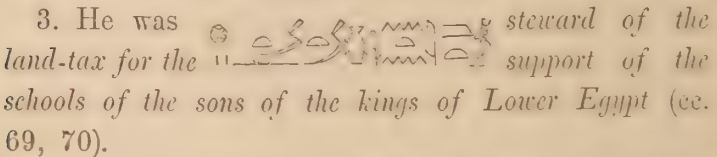 3. He was steward of the
land-tax for the support of the
schools of the sons of the kings of Lower Egypt (cc.
69, 70).